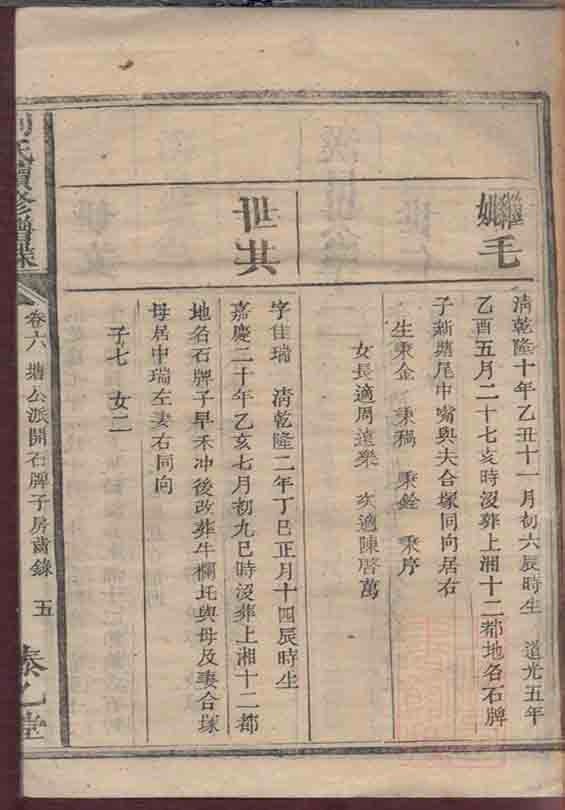 繼
娶毛
清乾隆十年乙丑十一月初六辰時生 道光五年
乙酉五月二十七亥時沒葬上湘十二都地名石牌
子新塘尾中嘴與夫合塚同向居右
生秉企 秉稱 秉銓 秉序
女長適周遠樂 次適陳啓萬
世共
字佳瑞 清乾隆二年丁巳正月十四辰時生
嘉慶二十年乙亥七月初九巳時沒葬上湘十二都
地名石牌子早禾冲後改葬牛欄坵與母及妻合塚
母居中瑞左妻右同向
子七 女二
氏續修譜
卷六 塘公派開石牌子房齒錄 五
泰乙堂